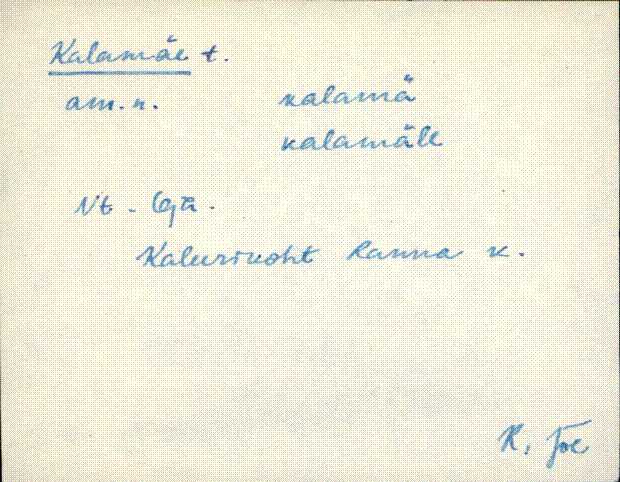 Kalamäe t.
am. n. kalamä
kalamäle
Kalurikoht Ranna k.
R. Joe